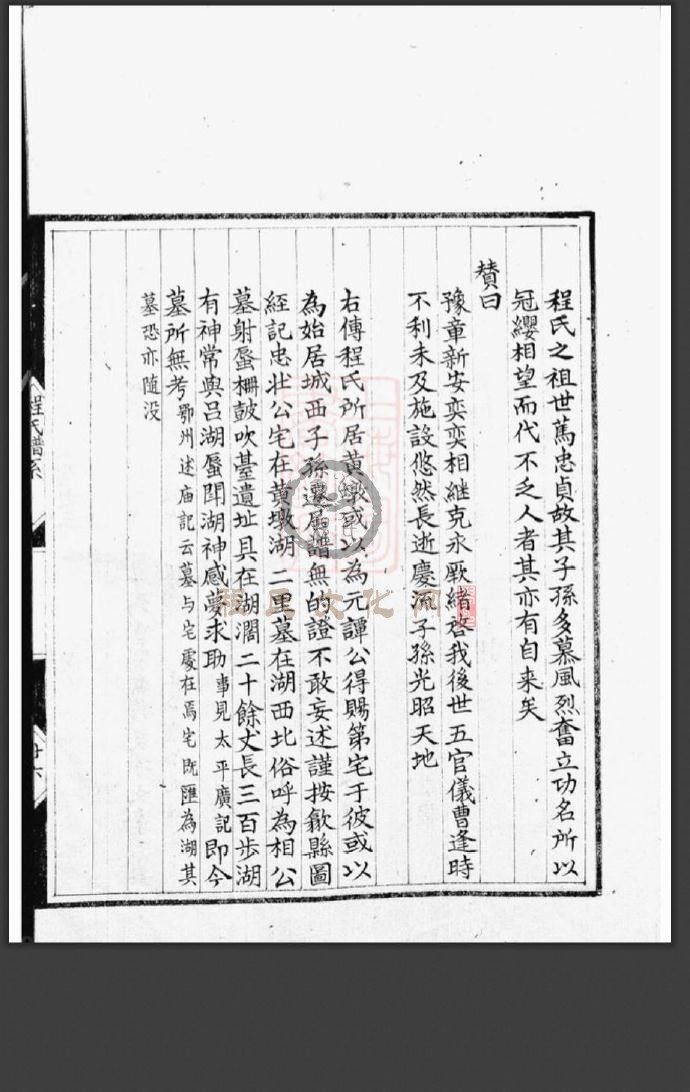 程氏之祖世篤忠貞故其子孫多慕風烈奮立功名所以
冠纓相望而代不乏人者其亦有自来矣
贊曰
豫章新安奕奕相継克永厥緒啓我後世五官儀曹逢時
不利未及施設悠然長逝慶流子孫光昭天地
右傳程氏所居黄墩或以為元譚公得賜第宅于彼或以
為始居城西子孫遷居譜無的證不敢妄述謹按歙縣圖
經記忠壮公宅在黄墩湖二里墓在湖西北俗呼為相公
墓射蜃柵鼓吹臺遺址具在湖濶二十餘丈長三百歩湖
有神常與吕湖蜃鬪湖神感夢求助事見太平廣記即今
墓所無考鄂州述庙記云墓与宅處在焉宅既匯為湖其
墓恐亦随没
程氏譜系
廿六
程里文化网